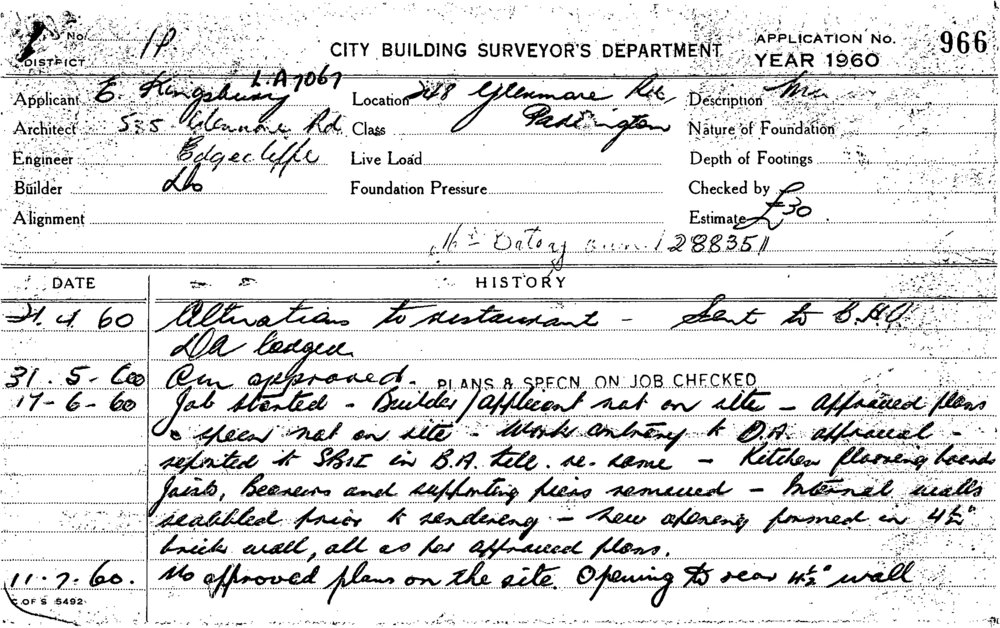 No. 1P CITY BUILDING SURVEYOR'S DEPARTMENT APPLICATION No. 966
DISTRICT YEAR 1960
L.A 7067
Applicant E. Kingsbury Location 248 Glenmore Rd, Description
Architect 535 Glenmore Rd Class Paddington Nature of Foundation
Engineer Edgecliffe Live Load Depth of Footings
Builder Do Foundation Pressure Checked by
Alignment Estimate £30
288351
DATE HISTORY
21.4.60 Alterations to restaurant - Sent to
DA lodged
31.5-60 approved. PLANS & SPECN ON JOB CHECKED
17-6-60 Job started - Builder/applicant not on site - approved plans
& specn not on site - Work contrary to D.A. approval -
reported to SBSI in B.A. tell. re. same - Kitchen flooring boards
Joists, Bearers and supporting piers removed - Internal walls
scabbled prior to rendering - new opening formed in 4½"
brick wall, all as per approved plans.
11.7.60. No approved plans on the site. Opening to rear 4½" wall
C. OF S 5492